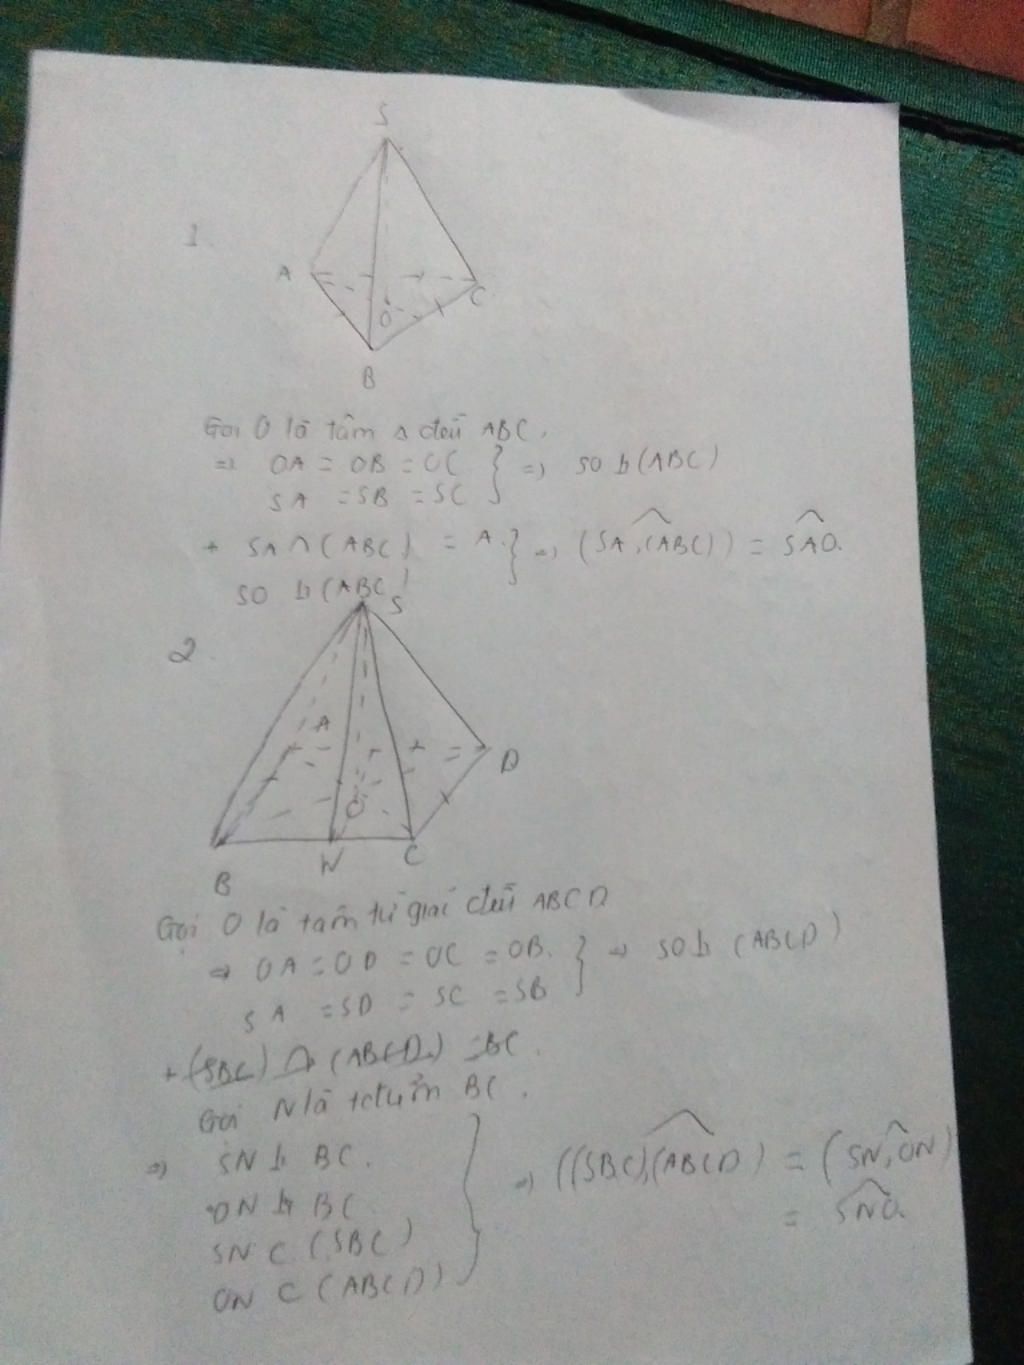 S
1.
A
C
O
B
Gọi O là tâm Δ đều ABC.
=> OA = OB = OC } => SO ⊥ (ABC)
SA = SB = SC
+ SA ∩ (ABC) = A. } => (SA,(ABC)) = SAO.
SO ⊥ (ABC)
S
2.
A
D
O
B
N
C
Gọi O là tâm tứ giác đều ABCD
=> OA = OD = OC = OB. } => SO ⊥ (ABCD)
SA = SD = SC = SB
+ (SBC) ∩ (ABCD) = BC.
Gọi N là BC.
=> SN ⊥ BC.
ON ⊥ BC
SN ⊂ (SBC)
ON ⊂ (ABCD)
=> ((SBC),(ABCD) = (SN,ON)
= SNO.